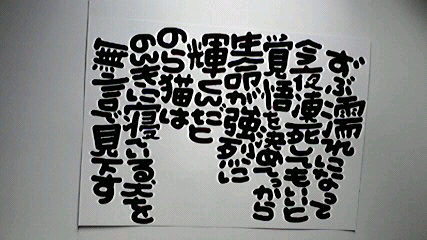 ずぶ濡れになって
今夜凍死してもいいと
覚悟を決めてっから
生命が強烈に
輝くんだと
のら猫は
のんきに寝ている犬を
無言で見下す